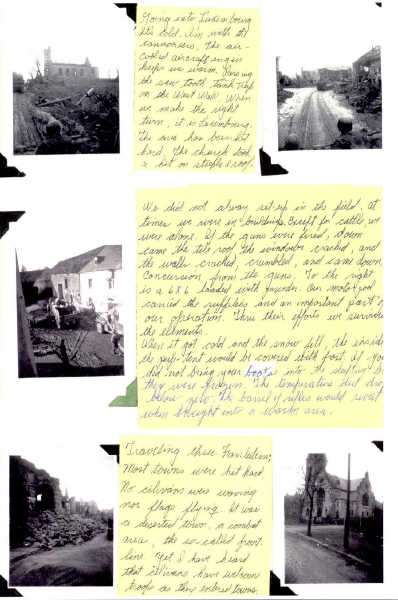 Going into Luxembourg
It's cold. I'm with the
cannoneers. The air-
cooled aircraft engin
keeps us warm. Pass up
the saw tooth tank trap
on the West Wall. When
we make the right
turn, it is Luxembourg.
The area has been hit
hard. The church took
a hit on steeple & roof.
We did not always set up in the field, at
times we were in buildings. Except for cattle, we
were alone. If the guns were fired, down
came the tile roof. The windows cracked, and
the walls cracked, crumbled, and came down.
Concussion from the guns. To the right
is a 6x6 loaded with powder. Our motor pool
carried the supplies and an important part of
our operation. Thru their efforts we survived
the elements.
When it got cold and the snow fell, the inside
the pup-tent would be covered with frost. If you
did not bring your boots into the sleeping
they were frozen. The temperature did drop
below zero. The barrel of rifles would sweat
when brought into a warm area.
Traveling thru
Most towns were hit hard
No civilians were waving
nor flags flying. It was
a deserted town, a combat
area, the so-called front
line. Yet I have heard
that civilians have welcom
troops as they entered towns.